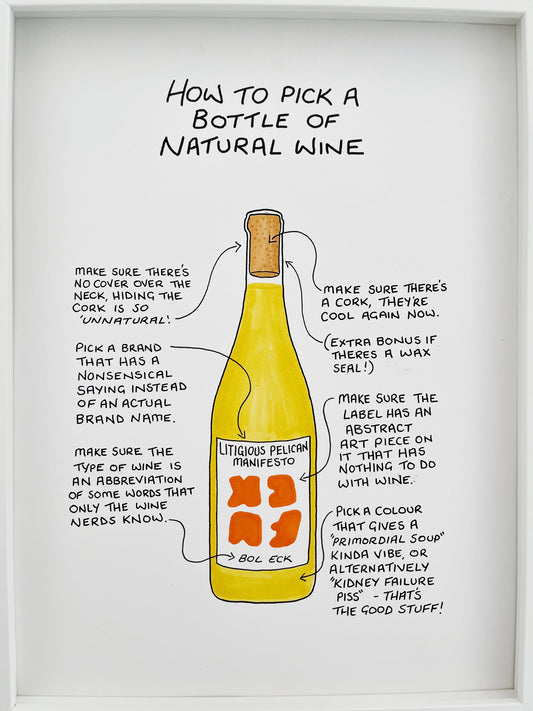 HOW TO PICK A
BOTTLE OF
NATURAL WINE
MAKE SURE THERE'S
NO COVER OVER THE
NECK, HIDING THE
CORK IS SO
'UNNATURAL'.
MAKE SURE THERE'S
A CORK, THEY'RE
COOL AGAIN NOW.
(EXTRA BONUS IF
THERES A WAX
SEAL!)
PICK A BRAND
THAT HAS A
NONSENSICAL
SAYING INSTEAD
OF AN ACTUAL
BRAND NAME.
MAKE SURE THE
LABEL HAS AN
ABSTRACT
ART PIECE ON
IT THAT HAS
NOTHING TO DO
WITH WINE.
MAKE SURE THE
TYPE OF WINE IS
AN ABBREVIATION
OF SOME WORDS THAT
ONLY THE WINE
NERDS KNOW.
PICK A COLOUR
THAT GIVES A
"PRIMORDIAL SOUP"
KINDA VIBE, OR
ALTERNATIVELY
"KIDNEY FAILURE
PISS" - THAT'S
THE GOOD STUFF!
LITIGIOUS PELICAN
MANIFESTO
BOL ECK